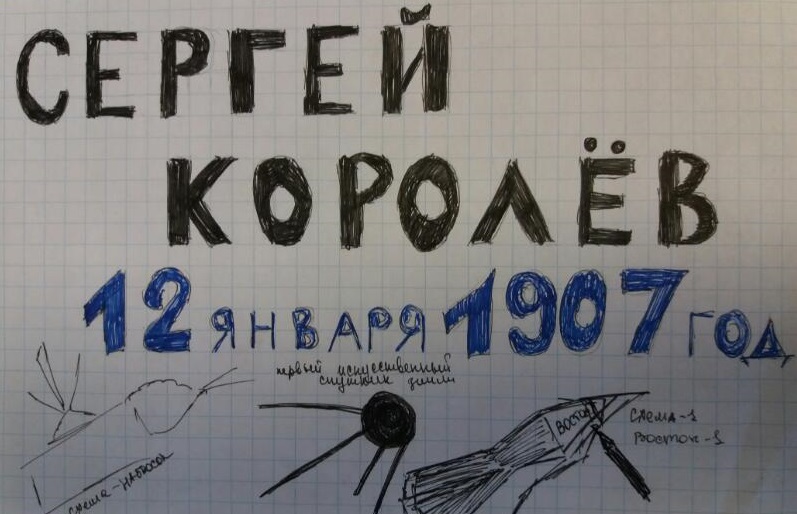 СЕРГЕЙ
КОРОЛЁВ
12 ЯНВАРЯ 1907 ГОД
первый искусственный
спутник земли
ВОСТОК
СХЕМА-1
ВОСТОК-1
СХЕМА-НАБРОСОК